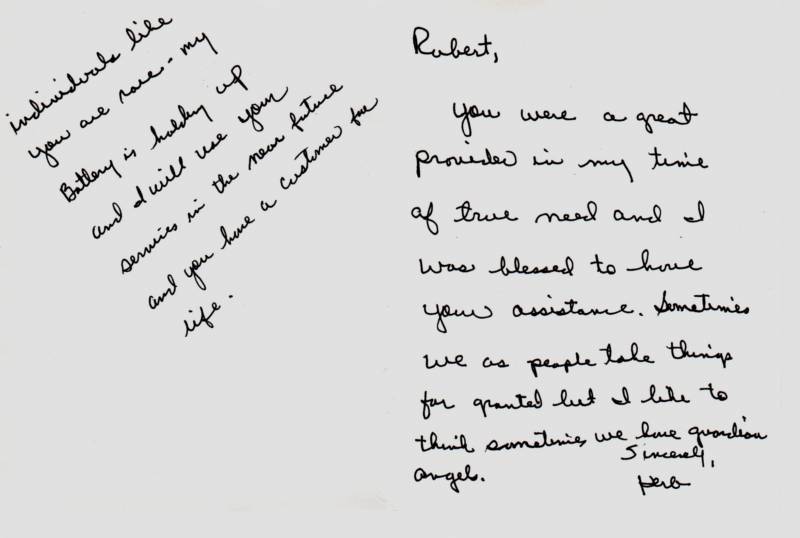 Robert,
You were a great
provider in my time
of true need and I
was blessed to have
your assistance. Sometimes
we as people take things
for granted but I like to
think sometimes we have guardian
angels.
Sincerely,
Herb
individuals like
you are rare - my
Battery is holding up
and I will use your
services in the near future
and you have a customer for
life.